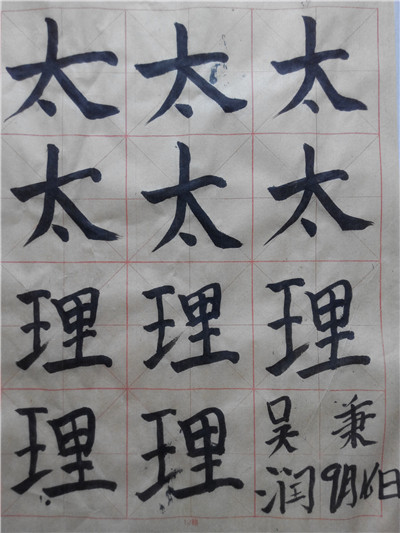 太太太
太太太
理理理
理理
吴秉
润9月16日